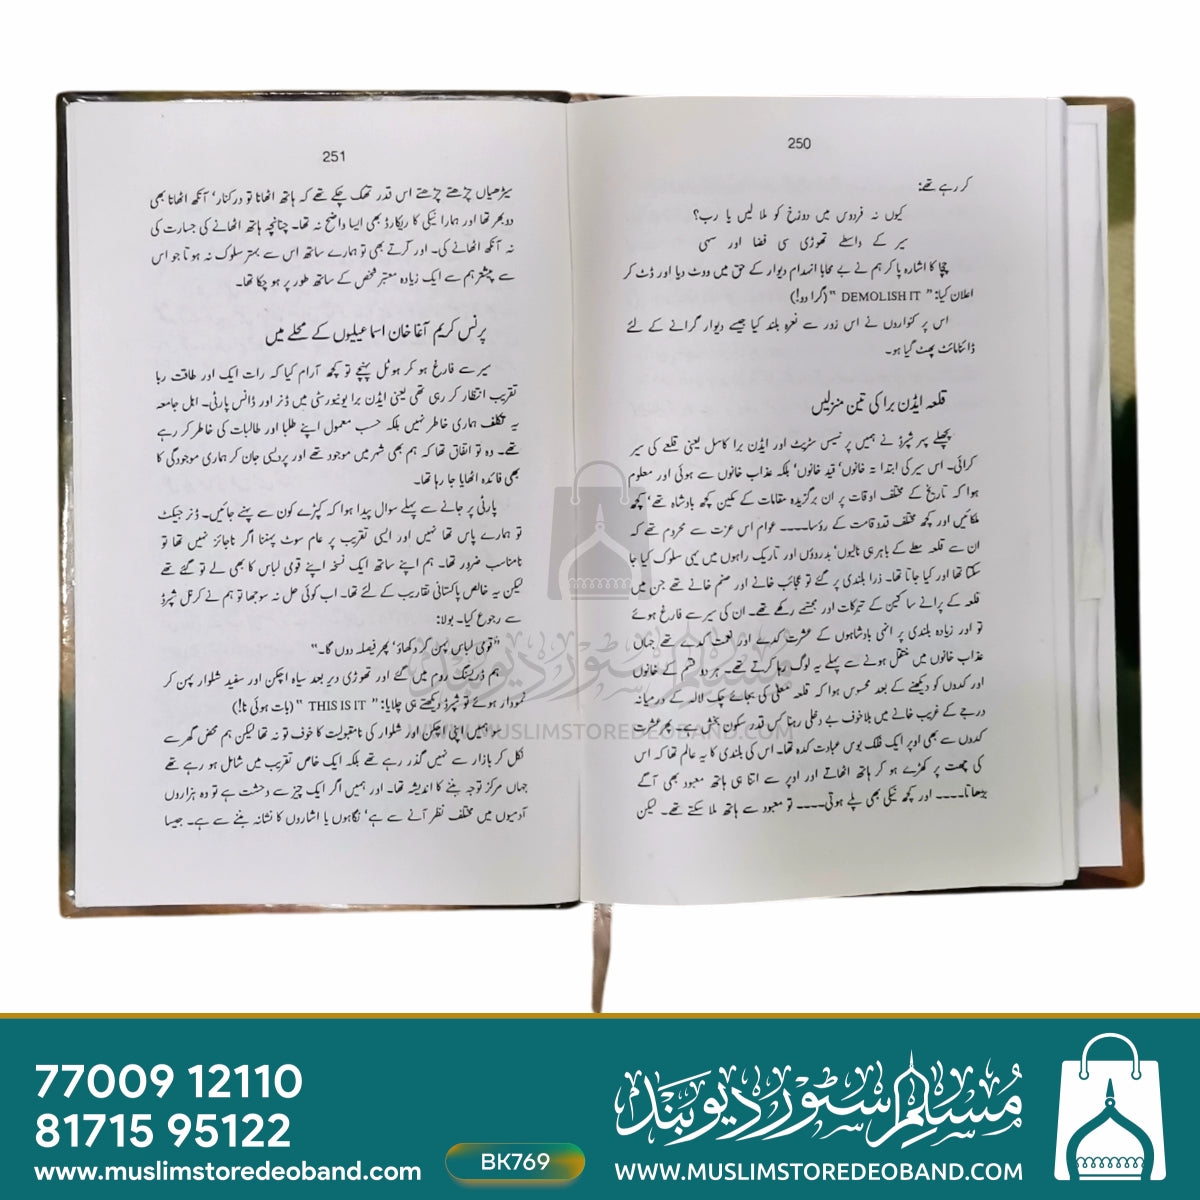 250
کر رہے تھے:
کیوں نہ فردوس میں دوزخ کو ملا لیں یا رب؟
سیر کے واسطے تھوڑی سی فضا اور سہی
چچا کا اشارہ پا کر ہم نے بے محابا انہدام دیوار کے حق میں ووٹ دیا اور ڈٹ کر
اعلان کیا: "DEMOLISH IT" (گرا دو!)
اس پر کنواروں نے اس زور سے نعرہ بلند کیا جیسے دیوار گرانے کے لئے
ڈائنامائٹ پھٹ گیا ہو۔
قلعہ ایڈن برا کی تین منزلیں
پچھلے پہر شپرڈ نے ہمیں پرنسیس سٹریٹ اور ایڈن برا کاسل یعنی قلعے کی سیر
کرائی۔ اس سیر کی ابتدا تہ خانوں' قید خانوں' بلکہ عذاب خانوں سے ہوئی اور معلوم
ہوا کہ تاریخ کے مختلف اوقات پر ان برگزیدہ مقامات کے مکین کچھ بادشاہ تھے' کچھ
ملکائیں اور کچھ مختلف قد و قامت کے رؤسا۔۔۔۔ عوام اس عزت سے محروم تھے کہ
ان سے قلعہ معلے کے باہر ہی نالیوں' بدروؤں اور تاریک راہوں میں یہی سلوک کیا جا
سکتا تھا اور کیا جاتا تھا۔ ذرا بلندی پر گئے تو عجائب خانے اور صنم خانے تھے جن میں
قلعہ کے پرانے ساکنین کے تبرکات اور مجسمے رکھے تھے۔ ان کی سیر سے فارغ ہوئے
تو اور زیادہ بلندی پر انہی بادشاہوں کے عشرت کدے اور نعمت کدے تھے جہاں
عذاب خانوں میں منتقل ہونے سے پہلے یہ لوگ رہا کرتے تھے۔ ہر دو قسم کے خانوں
اور کدوں کو دیکھنے کے بعد محسوس ہوا کہ قلعہ معلیٰ کی بجائے چک لالہ کے درمیانہ
درجے کے غریب خانے میں بلا خوف بے دخلی رہنا کس قدر سکون بخش ہے۔ پھر عشرت
کدوں سے بھی اوپر ایک فلک بوس عبادت کدہ تھا۔ اس کی بلندی کا یہ عالم تھا کہ اس
کی چھت پر کھڑے ہو کر ہاتھ اٹھاتے اور اوپر سے اتنا ہی ہاتھ معبود بھی آگے
بڑھاتا۔۔۔۔ اور کچھ نیکی بھی پلے ہوتی۔۔۔۔ تو معبود سے ہاتھ ملا سکتے تھے۔ لیکن
251
سیڑھیاں چڑھتے چڑھتے اس قدر تھک چکے تھے کہ ہاتھ اٹھانا تو درکنار' آنکھ اٹھانا بھی
دوبھر تھا اور ہمارا نیکی کا ریکارڈ بھی ایسا واضح نہ تھا۔ چنانچہ ہاتھ اٹھانے کی جسارت کی
نہ آنکھ اٹھانے کی۔ اور کرتے بھی تو ہمارے ساتھ اس سے بہتر سلوک نہ ہوتا جو اس
سے پیشتر ہم سے ایک زیادہ معتبر شخص کے ساتھ طور پر ہو چکا تھا۔
پرنس کریم آغا خان اسماعیلیوں کے محلے میں
سیر سے فارغ ہو کر ہوٹل پہنچے تو کچھ آرام کیا کہ رات ایک اور طاقت ربا
تقریب انتظار کر رہی تھی یعنی ایڈن برا یونیورسٹی میں ڈنر اور ڈانس پارٹی۔ اہل جامعہ
یہ تکلف ہماری خاطر نہیں بلکہ حسب معمول اپنے طلبا اور طالبات کی خاطر کر رہے
تھے۔ وہ تو اتفاق تھا کہ ہم بھی شہر میں موجود تھے اور پردیسی جان کر ہماری موجودگی کا
بھی فائدہ اٹھایا جا رہا تھا۔
پارٹی پر جانے سے پہلے سوال پیدا ہوا کہ کپڑے کون سے پہنے جائیں۔ ڈنر جیکٹ
تو ہمارے پاس تھا نہیں اور ایسی تقریب پر عام سوٹ پہننا اگر ناجائز نہیں تھا تو
نامناسب ضرور تھا۔ ہم اپنے ساتھ ایک نسخہ اپنے قومی لباس کا بھی لے تو گئے تھے
لیکن یہ خالص پاکستانی تقاریب کے لئے تھا۔ اب کوئی حل نہ سوجھا تو ہم نے کرنل شپرڈ
سے رجوع کیا۔ بولا:
"قومی لباس پہن کر دکھاؤ' پھر فیصلہ دوں گا۔"
ہم ڈریسنگ روم میں گئے اور تھوڑی دیر بعد سیاہ اچکن اور سفید شلوار پہن کر
نمودار ہوئے تو شپرڈ دیکھتے ہی چلایا: "THIS IS IT" (بات ہوئی نا!)
سو ہمیں اپنی اچکن اور شلوار کی نامقبولیت کا خوف تو نہ تھا لیکن ہم محض گھر سے
نکل کر بازار سے نہیں گذر رہے تھے بلکہ ایک خاص تقریب میں شامل ہو رہے تھے
جہاں مرکز توجہ بننے کا اندیشہ تھا۔ اور ہمیں اگر ایک چیز سے دحشت ہے تو وہ ہزاروں
آدمیوں میں مختلف نظر آنے سے ہے' نگاہوں یا اشاروں کا نشانہ بننے سے ہے۔ جیسا
مسلم سٹور دیوبند
WWW.MUSLIMSTOREDEOBAND.COM
77009 12110
81715 95122
www.muslimstoredeoband.com
BK769
مسلم سٹور دیوبند
WWW.MUSLIMSTOREDEOBAND.COM